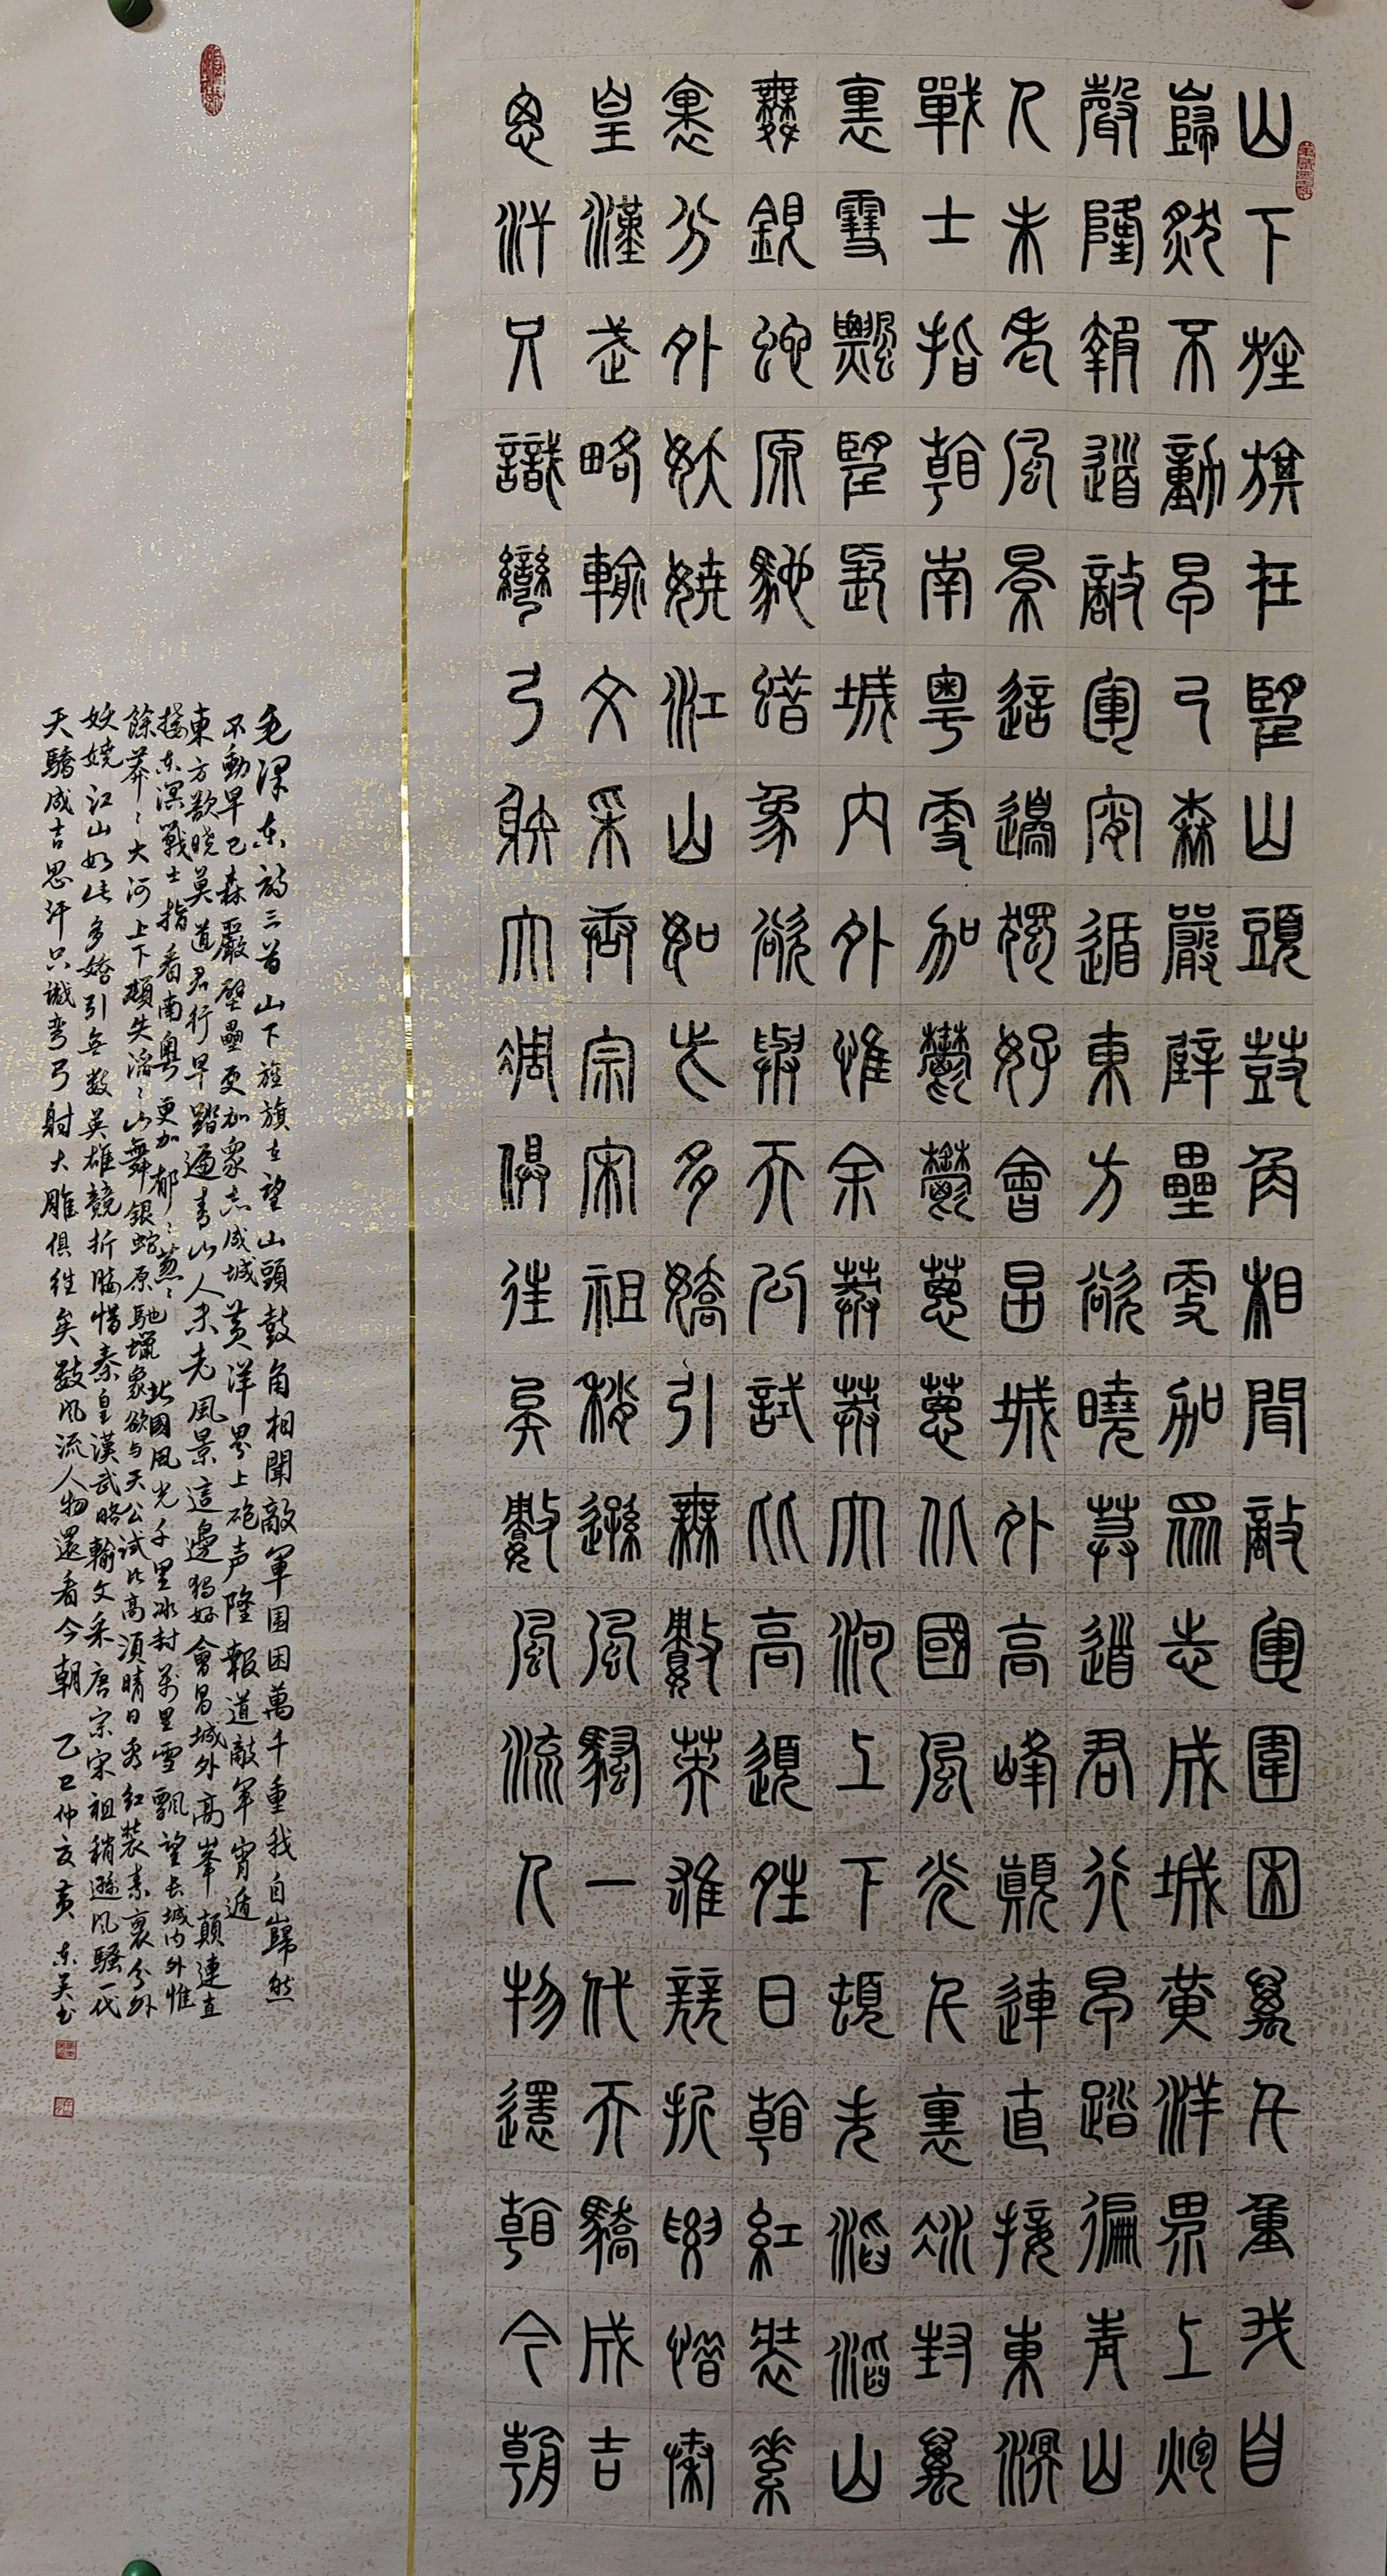 山下旌旗在望山頭鼓角相聞敵軍圍困萬千重我自
巋然不動早已森嚴壁壘更加眾志成城黃洋界上炮
聲隆報道敵軍宵遁東方欲曉莫道君行早踏遍青山
人未老風景這邊獨好會昌城外高峰顛連直接東溟
戰士指看南粵更加鬱鬱蔥蔥北國風光千裏冰封萬
裏雪飄望長城內外惟余莽莽大河上下頓失滔滔山
舞銀蛇原馳蠟象欲與天公試比高須晴日看紅裝素
裹分外妖嬈江山如此多嬌引無數英雄競折腰惜秦
皇漢武略輸文采唐宗宋祖稍遜風騷一代天驕成吉
思汗只識彎弓射大雕俱往矣數風流人物還看今朝
毛澤东詩三首山下旌旗在望山頭鼓角相聞敵軍围困萬千重我自巋然
不動早已森嚴壁壘更加眾志成城黃洋界上砲声隆報道敵軍宵遁
東方欲晓莫道君行早踏遍青山人未老風景這邊獨好會昌城外高峯顛連直
接东溟戰士指看南粤更加郁〻葱〻北國風光千里冰封萬里雪飄望长城内外惟
餘莽〻大河上下頓失滔〻山舞銀蛇原馳蠟象欲与天公试比高須晴日看红裝素裹分外
妖嬈江山如此多嬌引無数英雄競折腰惜秦皇漢武略輸文采唐宗宋祖稍遜风騷一代
天驕成吉思汗只識弯弓射大雕俱往矣數风流人物還看今朝 乙巳仲夏黄东吴书